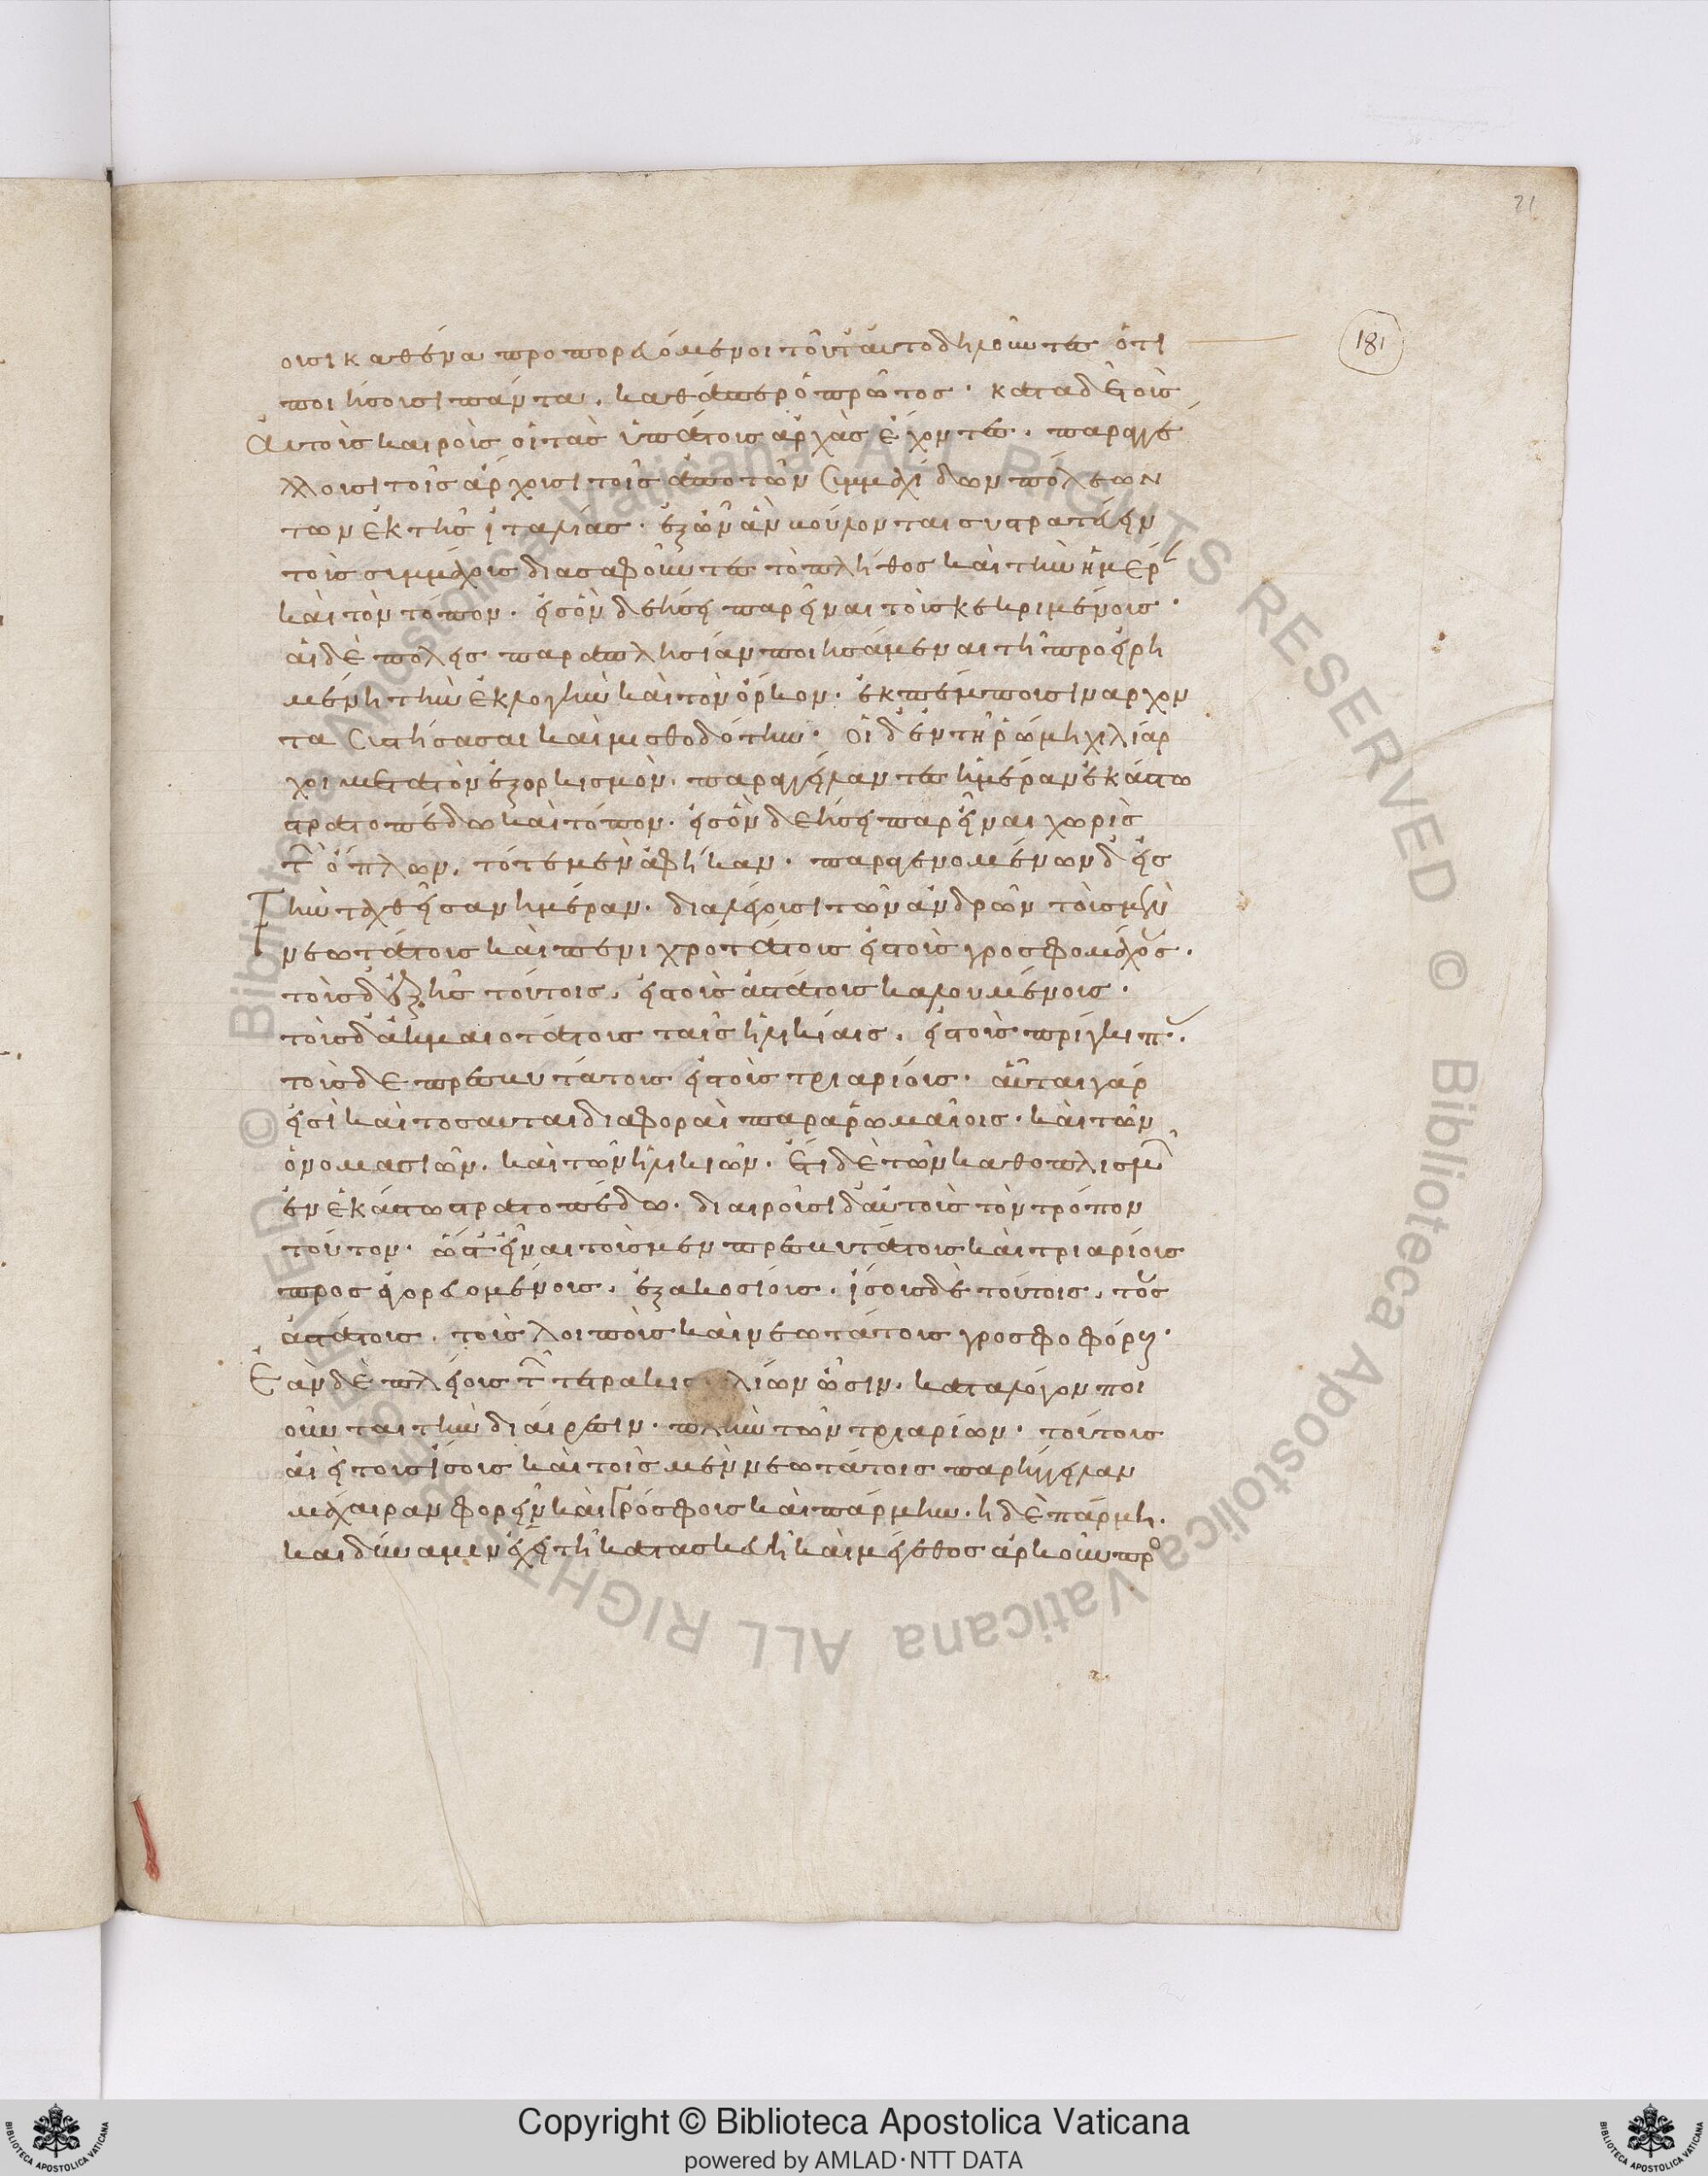 21
181
ουσι καθένα προπορευόμενοι τοῦτ' αὐτο δηλοῦντες ὅτι
ποιήσουσι πάντα. καθάπερ ὁ πρῶτος. κατα δὲ τοὺς
ἀυτοὺς καιροὺς οἱ τὰς ὑπάτους ἀρχὰς ἔχοντες. παραγγέ
λλουσι τοῖς ἄρχουσι τοῖς ἀπο τῶν συμμαχίδων πόλεων
των ἐκ τῆς ἰταλίας. ἐξ ὧν ἂν βούλονται συστρατεύειν
τοὺς συμμάχους διασαφοῦντες τὸ πλῆθος καὶ τὴν ἡμέρ
καὶ τὸν τόπον. εἰς ὃν δεήσει παρεῖναι τοὺς κεκριμένους.
αἱ δὲ πόλεις παραπλησίαν ποιησάμεναι τῆ προειρη
μένη τὴν ἐκλογὴν καὶ τὸν ὅρκον. ἐκπέμπουσιν αρχον
τα συστήσασαι καὶ μισθοδότην. οἱ δ' ἐν τῆ ῥώμη χιλίαρ
χοι μετα τὸν ἐξορκισμὸν. παραγγείλαντες ἡμέραν ἑκάστω
στρατοπέδω καὶ τόπον. εἰς ὃν δεήσει παρεῖναι χωρὶς
τ ὅπλων. τότε μὲν ἀφῆκαν. παραγενομένων δ' εἰς
τὴν ταχθεῖσαν ἡμέραν. διαλέγουσι τῶν ἀνδρῶν τοὺς μὲν
νεωτάτους καὶ πενιχροτάτους εἰς τοὺς γροσφομάχους.
τοὺς δ' ἑξῆς τούτοις. εἰς τοὺς ἁστάτους καλουμένους.
τοὺς δ' ἀκμαιοτάτους ταῖς ἡλικίαις. εἰς τοὺς πρίγκιπ.
τοὺς δε πρεσβυτάτους εἰς τοὺς τριαρίους. αὗται γάρ
εἰσὶ καὶ τοσαυται διαφοραὶ παρα ῥωμαίοις. καὶ τῶν
ὀνομασιῶν. καὶ τῶν ἡλικιῶν. ἔτι δὲ τῶν καθοπλισμ
ἐν ἑκάστω στρατοπέδω. διαιροῦσι δ' αὐτοὺς τὸν τρόπον
τούτον. ὥστ' εἶναι τοὺς μεν πρεσβυτάτους καὶ τριαρίους
προσαγορευομένους. ἑξακοσίους. ἴσους δὲ τούτοις. τοὺς
ἁστάτους. τοὺς λοιποὺς καὶ νεωτάτους γροσφοφόρους.
ἐὰν δὲ πλείους τ τετρακισ λίων ὦσιν. κατα λόγον ποι
οῦνται τὴν διαίρεσιν. πλὴν τῶν τριαρίων. τούτους
ἀεὶ τοὺς ἴσους καὶ τοὺς μὲν νεωτάτοις παρήγγειλαν
μάχαιραν φορεῖν καὶ γρόσφους καὶ πάρμην. ἡ δὲ πάρμη.
καὶ δύναμιν ἔχει τῆ κατασκευῆ καὶ μέγεθος ἀρκοῦν πρὸ
Copyright © Biblioteca Apostolica Vaticana
powered by AMLAD·NTT DATA